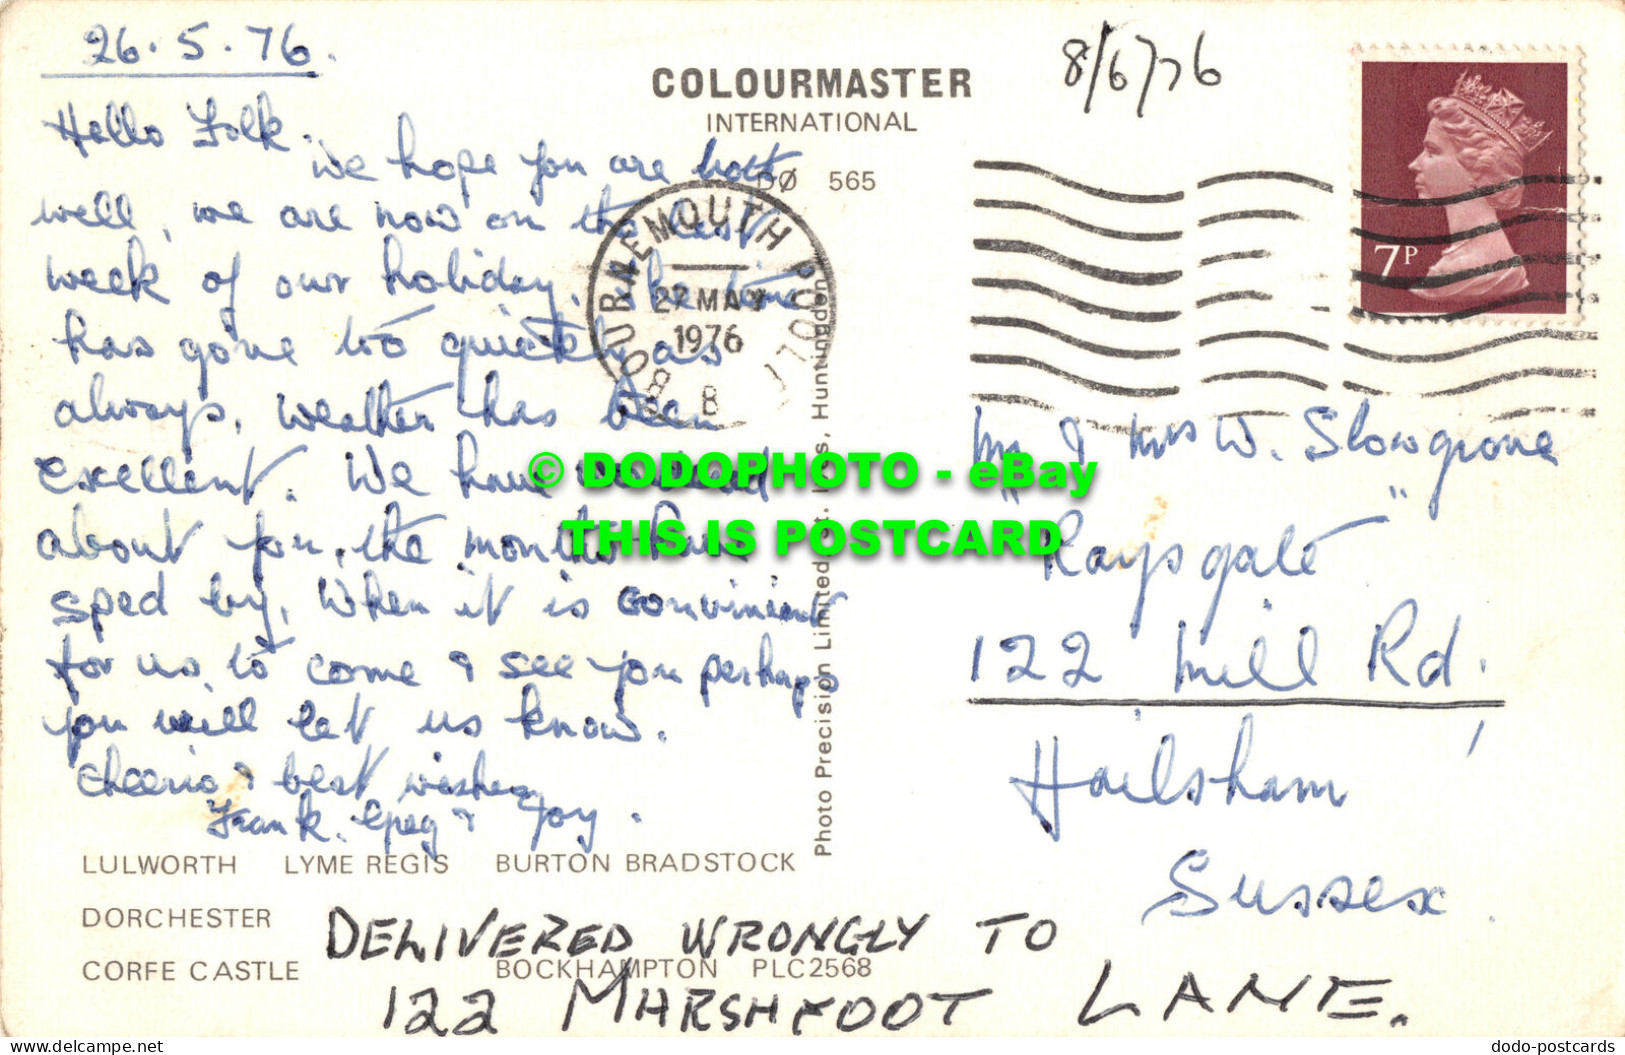 26.5.76.
Hello Folk.
We hope you are both
well, we are now on the last
week of our holiday. The time
has gone to quickly as
always. Weather has been
excellent. We have wondered
about you, the months have
sped by. When it is convinient
for us to come & see you perhaps
you will let us know.
Cheerio & best wishes
Frank. Gpeg & Joy.
COLOURMASTER
INTERNATIONAL
565
8/6/76
7P
BOURNEMOUTH POOLE
27 MAY
1976
B
Photo Precision Limited, St. Ives, Huntingdon
Mr & Mrs W. Slowgrove
"Raysgate"
122 Mill Rd.
Hailsham
Sussex.
LULWORTH LYME REGIS BURTON BRADSTOCK
DORCHESTER
CORFE CASTLE BOCKHAMPTON PLC2568
DELIVERED WRONGLY TO
122 MARSHFOOT LANE.
© DODOPHOTO - eBay
THIS IS POSTCARD
www.delcampe.net
dodo-postcards